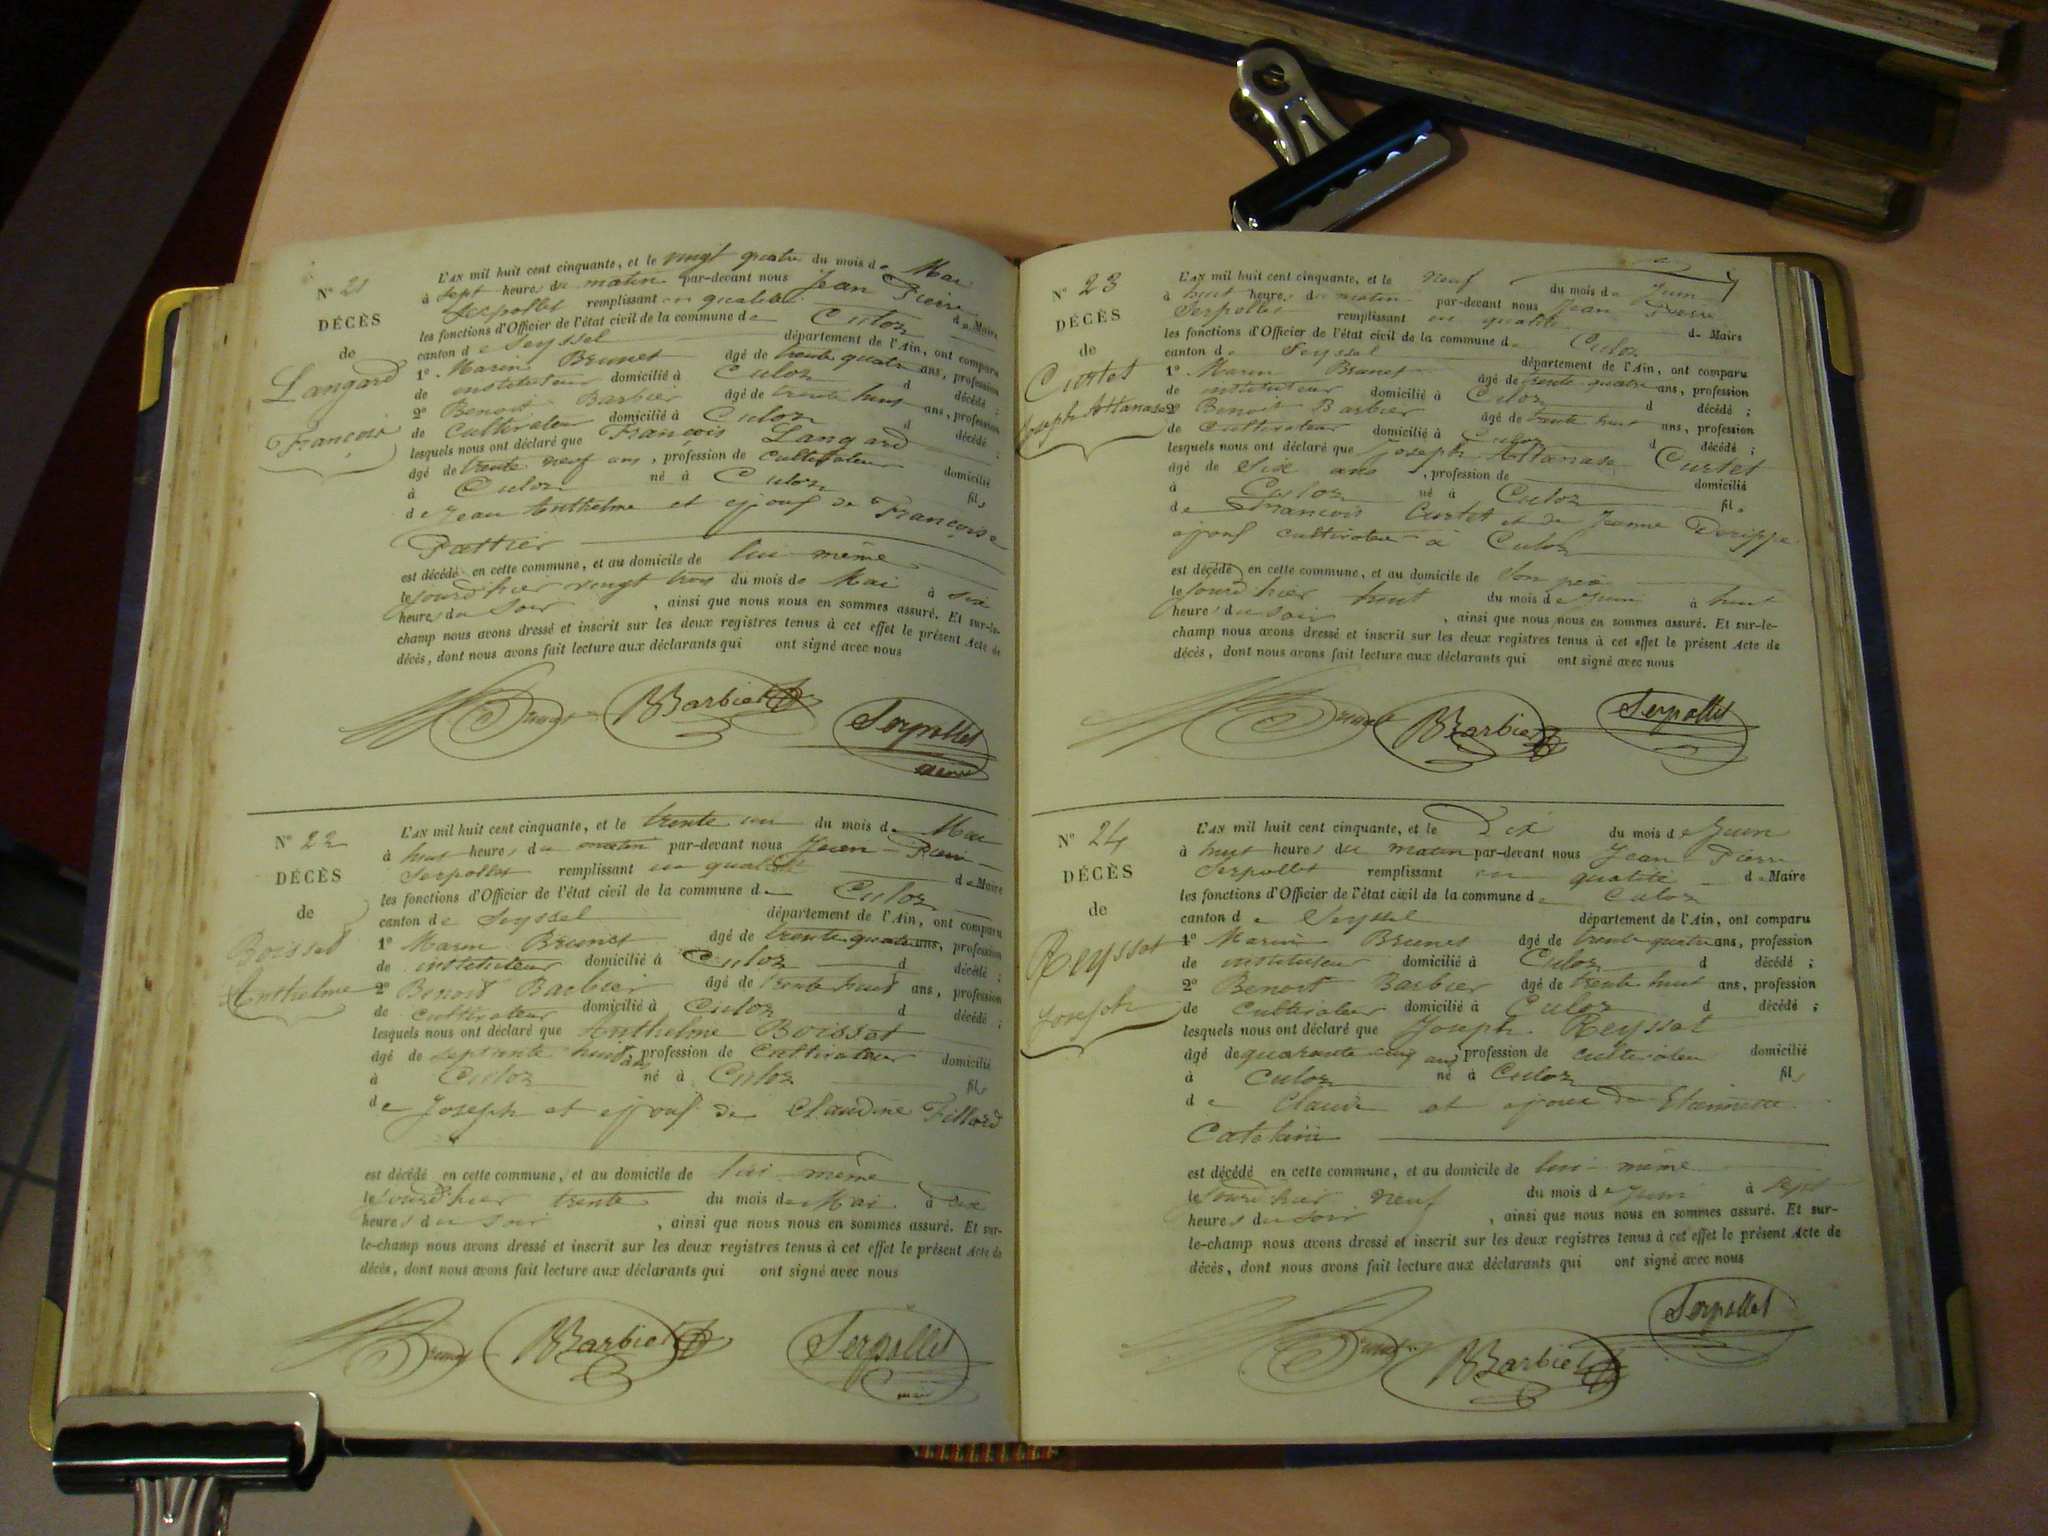 N° 21
DÉCÈS
de
Langard
François
L'AN mil huit cent cinquante, et le vingt quatre du mois de Mai
à sept heures du matin par-devant nous Jean Pierre
Serpollet remplissant en qualité de Maire
les fonctions d'Officier de l'état civil de la commune de Culoz
canton de Seyssel département de l'Ain, ont comparu
1° Marin Brunet âgé de trente quatre ans, profession
de instituteur domicilié à Culoz d décédé ;
2° Benoit Barbier âgé de trente huit ans, profession
de Cultivateur domicilié à Culoz d décédé ;
lesquels nous ont déclaré que François Langard
âgé de trente neuf ans, profession de cultivateur domicilié
à Culoz né à Culoz fils
de Jean Anthelme et époux de Françoise
est décédé en cette commune, et au domicile de lui-même
le jourd'hier vingt trois du mois de Mai à six
heures du Soir, ainsi que nous nous en sommes assuré. Et sur-le-
champ nous avons dressé et inscrit sur les deux registres tenus à cet effet le présent Acte de
décès, dont nous avons fait lecture aux déclarants qui ont signé avec nous
Brunet BBarbier Serpollet
maire
N° 22
DÉCÈS
de
Boissat
Anthelme
L'AN mil huit cent cinquante, et le trente un du mois de Mai
à huit heures du matin par-devant nous Jean-Pierre
Serpollet remplissant en qualité de Maire
les fonctions d'Officier de l'état civil de la commune de Culoz
canton de Seyssel département de l'Ain, ont comparu
1° Marin Brunet âgé de trente quatre ans, profession
de instituteur domicilié à Culoz d décédé ;
2° Benoit Barbier âgé de trente huit ans, profession
de cultivateur domicilié à Culoz d décédé ;
lesquels nous ont déclaré que Anthelme Boissat
âgé de septante huit ans, profession de Cultivateur domicilié
à Culoz né à Culoz fils
de Joseph et époux de Claudine Fillard
est décédé en cette commune, et au domicile de lui-même
le jourd'hier trente du mois de Mai à six
heures du soir, ainsi que nous nous en sommes assuré. Et sur-
le-champ nous avons dressé et inscrit sur les deux registres tenus à cet effet le présent Acte de
décès, dont nous avons fait lecture aux déclarants qui ont signé avec nous
Brunet BBarbier Serpollet
maire
N° 23
DÉCÈS
de
Curtet
Joseph Attanase
L'AN mil huit cent cinquante, et le neuf du mois de Juin
à huit heures du matin par-devant nous Jean Pierre
Serpollet remplissant en qualité de Maire
les fonctions d'Officier de l'état civil de la commune de Culoz
canton de Seyssel département de l'Ain, ont comparu
1° Marin Brunet âgé de trente quatre ans, profession
de instituteur domicilié à Culoz d décédé ;
2° Benoit Barbier âgé de trente huit ans, profession
de cultivateur domicilié à Culoz d décédé ;
lesquels nous ont déclaré que Joseph Attanase Curtet
âgé de six ans, profession de domicilié
à Culoz né à Culoz fils
de François Curtet et de Jeanne
époux cultivateur à Culoz
est décédé en cette commune, et au domicile de Son père
le jourd'hier huit du mois de Juin à huit
heures du soir, ainsi que nous nous en sommes assuré. Et sur-le-
champ nous avons dressé et inscrit sur les deux registres tenus à cet effet le présent Acte de
décès, dont nous avons fait lecture aux déclarants qui ont signé avec nous
Brunet BBarbier Serpollet
N° 24
DÉCÈS
de
Reyssat
Joseph
L'AN mil huit cent cinquante, et le Dix du mois de Juin
à huit heures du matin par-devant nous Jean Pierre
Serpollet remplissant en qualité de Maire
les fonctions d'Officier de l'état civil de la commune de Culoz
canton de Seyssel département de l'Ain, ont comparu
1° Marin Brunet âgé de trente quatre ans, profession
de instituteur domicilié à Culoz d décédé ;
2° Benoit Barbier âgé de trente huit ans, profession
de Cultivateur domicilié à Culoz d décédé ;
lesquels nous ont déclaré que Joseph Reyssat
âgé de quarante cinq ans profession de cultivateur domicilié
à Culoz né à Culoz fils
de Claude et époux de Etiennette
est décédé en cette commune, et au domicile de lui-même
le jourd'hier neuf du mois de Juin à sept
heures du soir, ainsi que nous nous en sommes assuré. Et sur-
le-champ nous avons dressé et inscrit sur les deux registres tenus à cet effet le présent Acte de
décès, dont nous avons fait lecture aux déclarants qui ont signé avec nous
Brunet BBarbier Serpollet